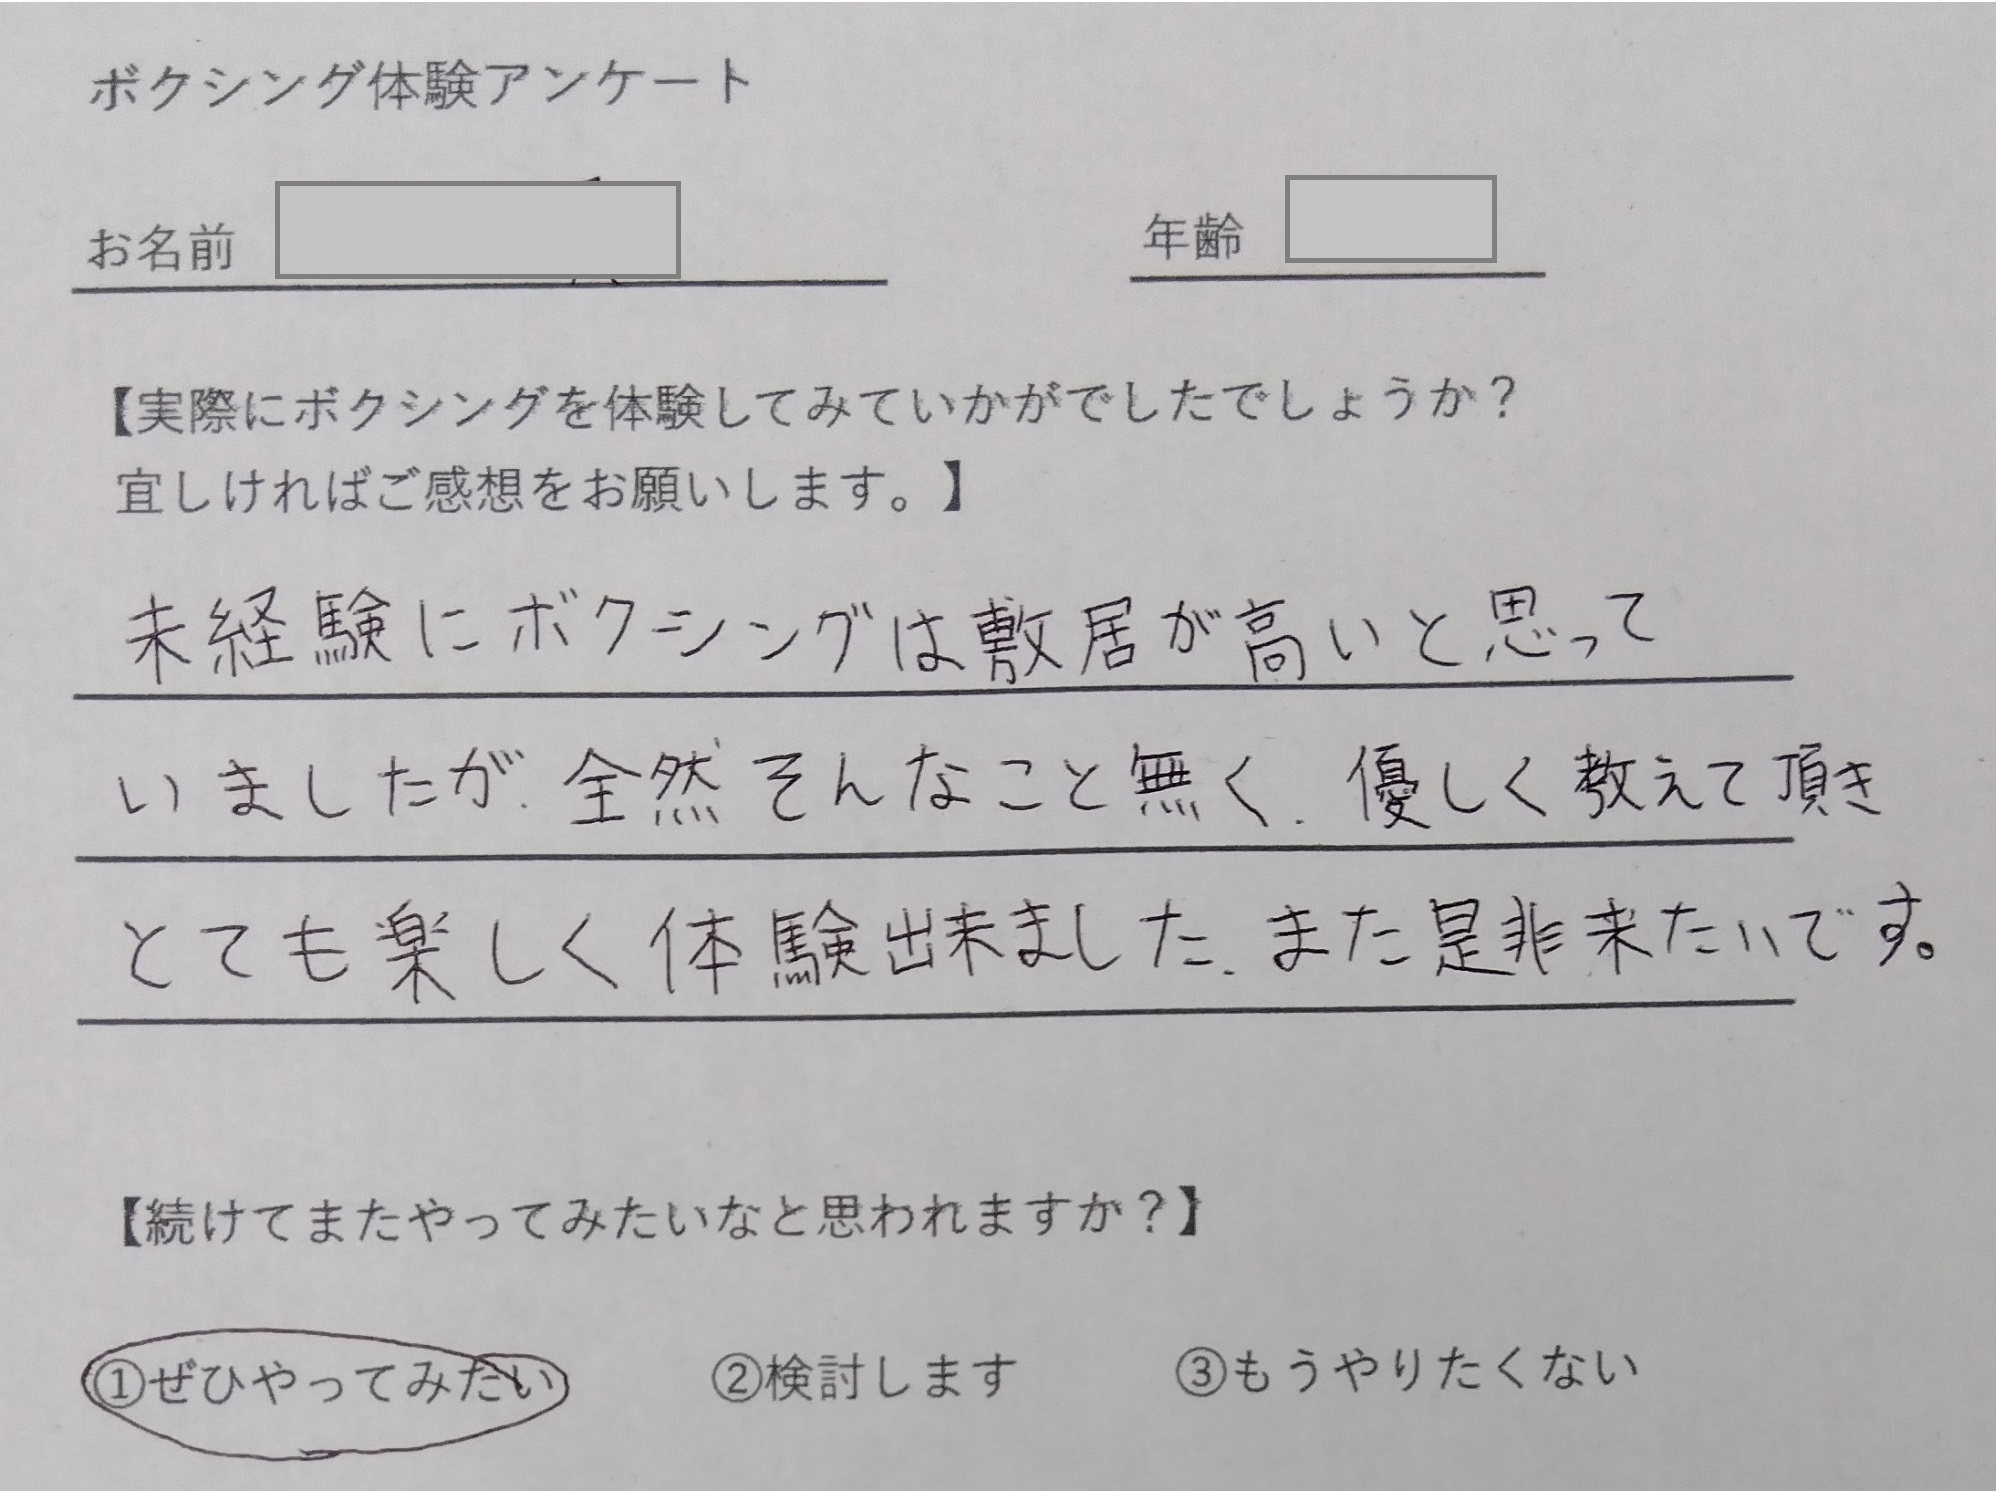 ボクシング体験アンケート
お名前 年齢
【実際にボクシングを体験してみていかがでしたでしょうか？
宜しければご感想をお願いします。】
未経験にボクシングは敷居が高いと思って
いましたが、全然そんなこと無く、優しく教えて頂き
とても楽しく体験出来ました、また是非来たいです。
【続けてまたやってみたいなと思われますか？】
①ぜひやってみたい ②検討します ③もうやりたくない